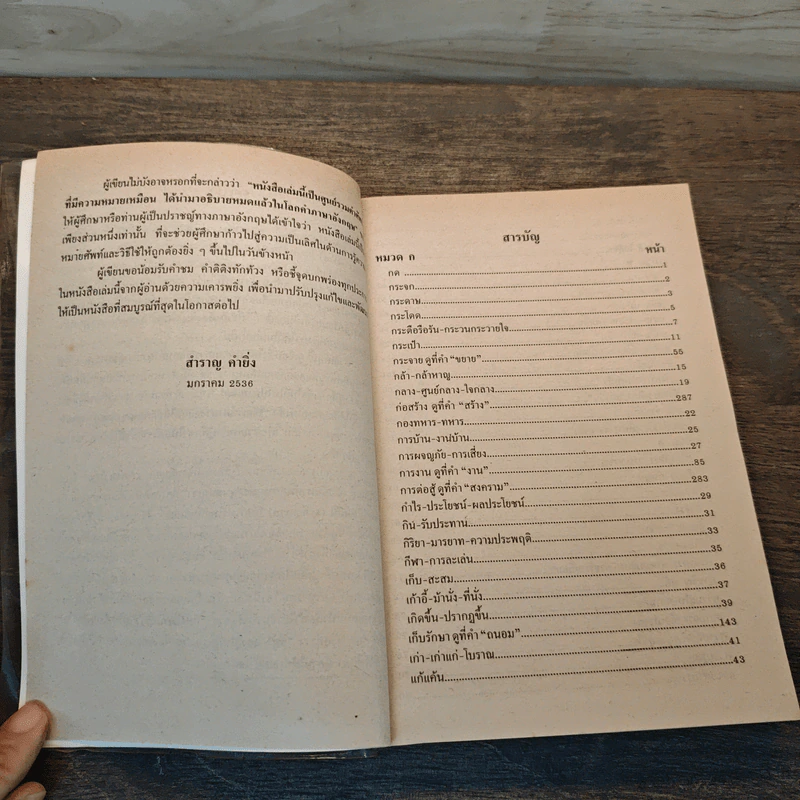 ผู้เขียนไม่บังอาจหรอกที่จะกล่าวว่า "หนังสือเล่มนี้เป็นศูนย์รวมคำศัพ
ที่มีความหมายเหมือน ได้นำมาอธิบายหมดแล้วในโลกคำภาษาอังกฤษ"
ให้ผู้ศึกษาหรือท่านผู้เป็นปราชญ์ทางภาษาอังกฤษได้เข้าใจว่า หนังสือเล่มนี้
เพียงส่วนหนึ่งเท่านั้น ที่จะช่วยผู้ศึกษาก้าวไปสู่ความเป็นเลิศในด้านการรู้
หมายศัพท์และวิธีใช้ให้ถูกต้องยิ่ง ๆ ขึ้นไปในวันข้างหน้า
ผู้เขียนขอน้อมรับคำชม คำติติงทักท้วง หรือชี้จุดบกพร่องทุกประ
ในหนังสือเล่มนี้จากผู้อ่านด้วยความเคารพยิ่ง เพื่อนำมาปรับปรุงแก้ไขและ
ให้เป็นหนังสือที่สมบูรณ์ที่สุดในโอกาสต่อไป
สำราญ คำยิ่ง
มกราคม 2536
สารบัญ
หมวด ก หน้า
กด ... 1
กระจก ... 2
กระดาษ ... 3
กระโดด ... 5
กระตือรือร้น-กระวนกระวายใจ ... 7
กระเป๋า ... 11
กระจาย ดูที่คำ "ขยาย" ... 55
กล้า-กล้าหาญ ... 15
กลาง-ศูนย์กลาง-ใจกลาง ... 19
ก่อสร้าง ดูที่คำ "สร้าง" ... 287
กองทหาร-ทหาร ... 22
การบ้าน-งานบ้าน ... 25
การผจญภัย-การเสี่ยง ... 27
การงาน ดูที่คำ "งาน" ... 85
การต่อสู้ ดูที่คำ "สงคราม" ... 283
กำไร-ประโยชน์-ผลประโยชน์ ... 29
กิน-รับประทาน ... 31
กิริยา-มารยาท-ความประพฤติ ... 33
กีฬา-การละเล่น ... 35
เก็บ-สะสม ... 36
เก้าอี้-ม้านั่ง-ที่นั่ง ... 37
เกิดขึ้น-ปรากฏขึ้น ... 39
เก็บรักษา ดูที่คำ "ถนอม" ... 143
เก่า-เก่าแก่-โบราณ ... 41
แก้แค้น ... 43